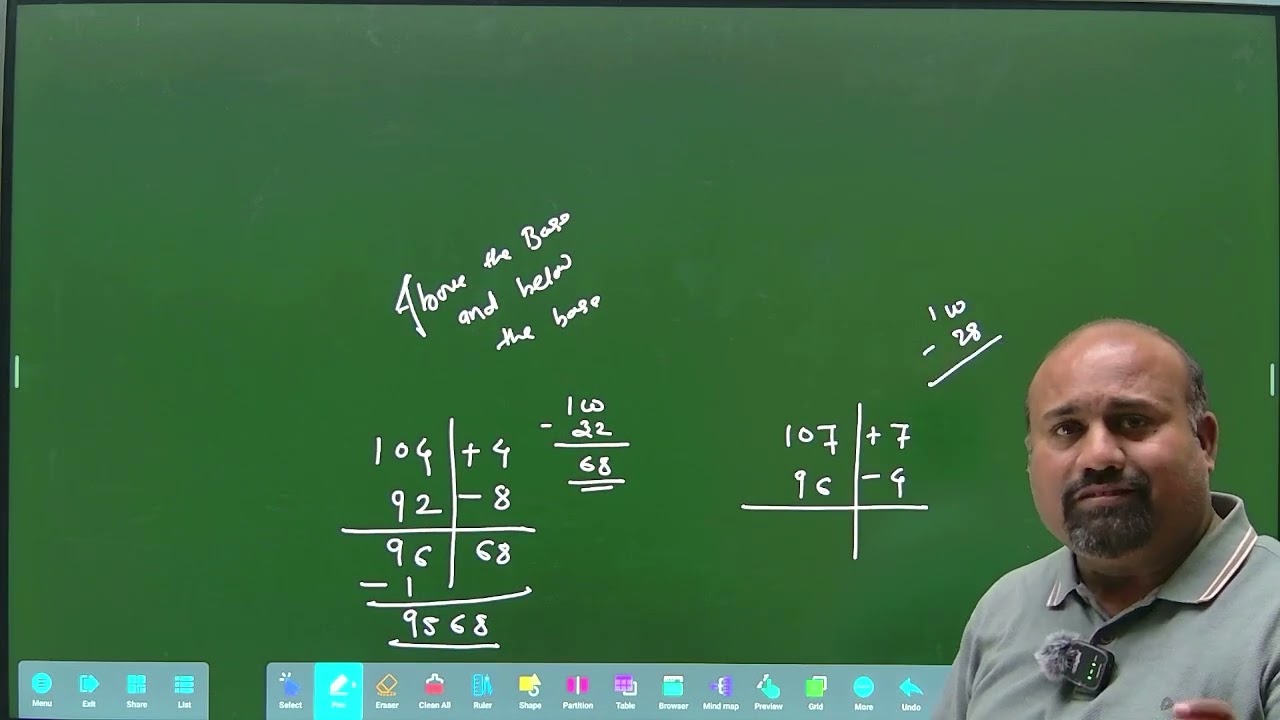 Above the Base
and below
the base
100
- 32
68
104 | + 4
92 | - 8
96 | 68
- 1
9568
100
- 28
107 | + 7
96 | - 4
Menu
Exit
Share
List
Select
Pen
Eraser
Clean All
Ruler
Shape
Partition
Table
Browser
Mind map
Preview
Grid
More
Undo